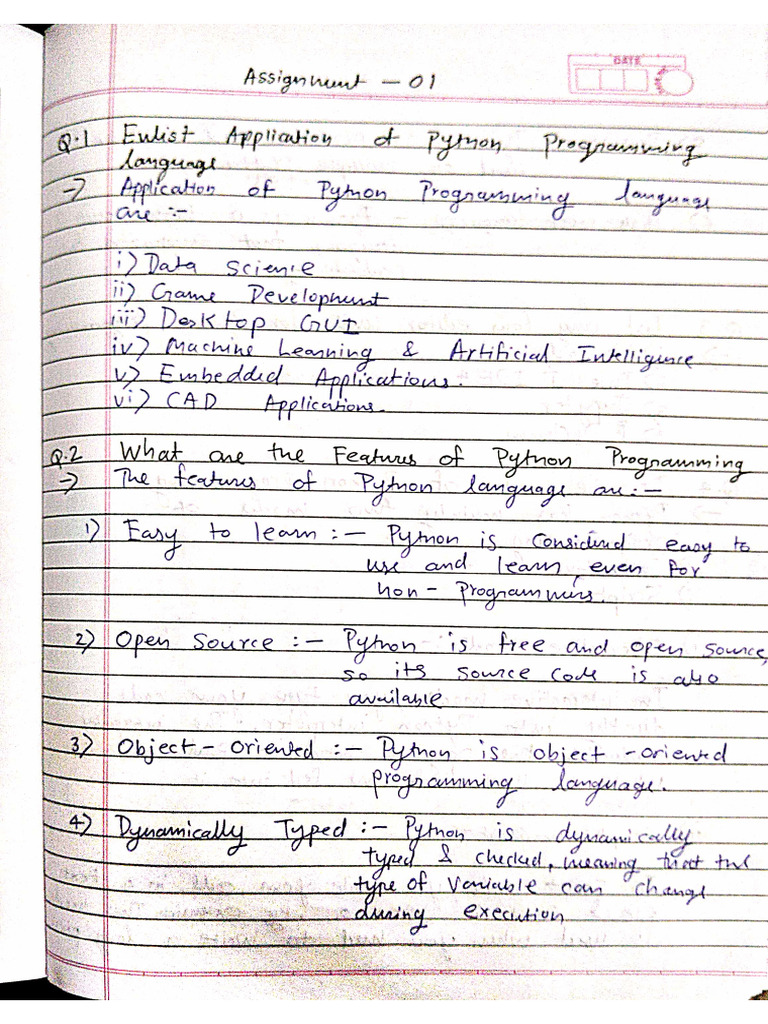 DATE
Assignment - 01
Q.1 Enlist Application of Python Programming
language
→ Application of Python Programming language
are :-
i) Data Science
ii) Game Development
iii) Desktop GUI
iv) Machine Learning & Artificial Intelligence
v) Embedded Applications.
vi) CAD Applications.
Q.2 What are the Features of Python Programming
→ The features of Python language are:-
1) Easy to learn :- Python is considered easy to
use and learn, even for
non-Programmers.
2) Open Source :- Python is free and open source,
so its source code is also
available
3) Object-Oriented :- Python is object-oriented
programming language.
4) Dynamically Typed :- Python is dynamically
typed & checked, meaning that the
type of variable can change
during execution